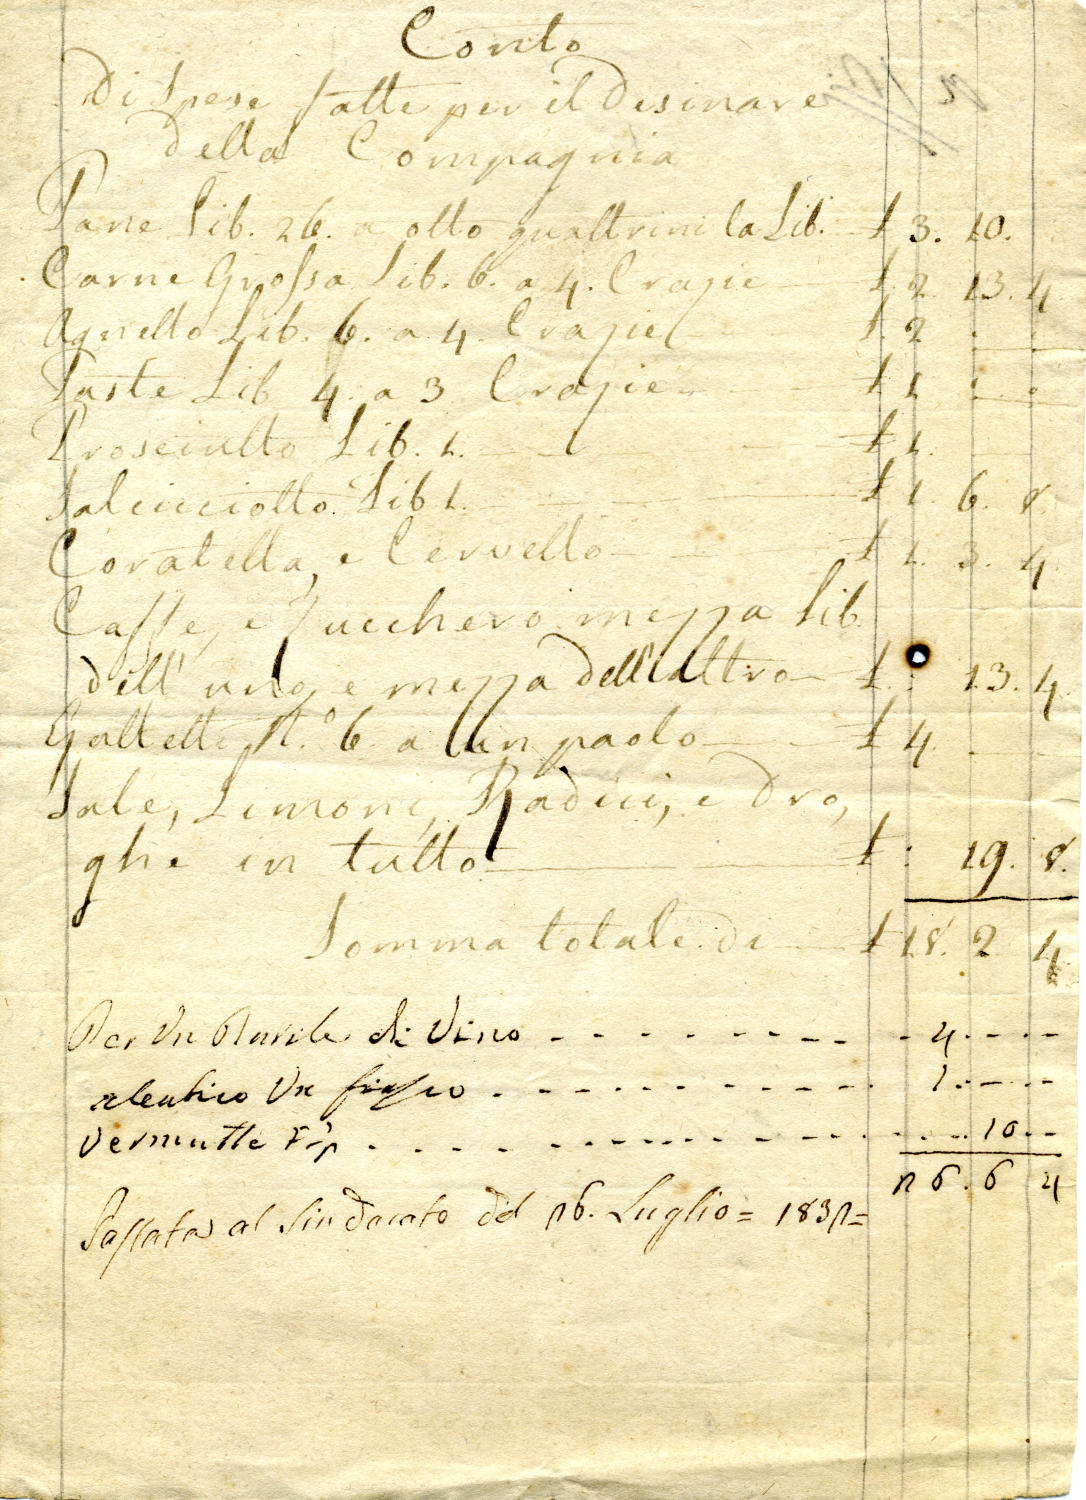 Conto
Di Spese fatte per il Desinare
Della Compagnia
Pane Lib. 26. a otto quattrini la Lib. £ 3. 10.
Carne Grossa Lib. 6. a 4. Crazie £ 2. 13. 4
Agnello Lib. 6. a 4. Crazie £. 2 . .
Paste Lib 4. a 3 Crazie £ 1 . .
Prosciutto Lib. 1. £ 1.
Salcicciotto Lib 1. £ 1. 6. 8
Coratella, e Cervello £ 1. 3. 4
Caffe, e Zucchero mezza Lib.
dell' uno, e mezza dell'altro £ : 13. 4
Galletti N.º 6 a un paolo £ 4 - -
Sale, Limoni, Radici, e Dro,
ghe in tutto £ : 19. 8.
Somma totale di £ 18. 2 4
Per Un Barile di Vino 4
aleatico Un fiasco 1
Vermutte 10
26. 6 4
Passata al Sindacato del 26. Luglio = 1832=